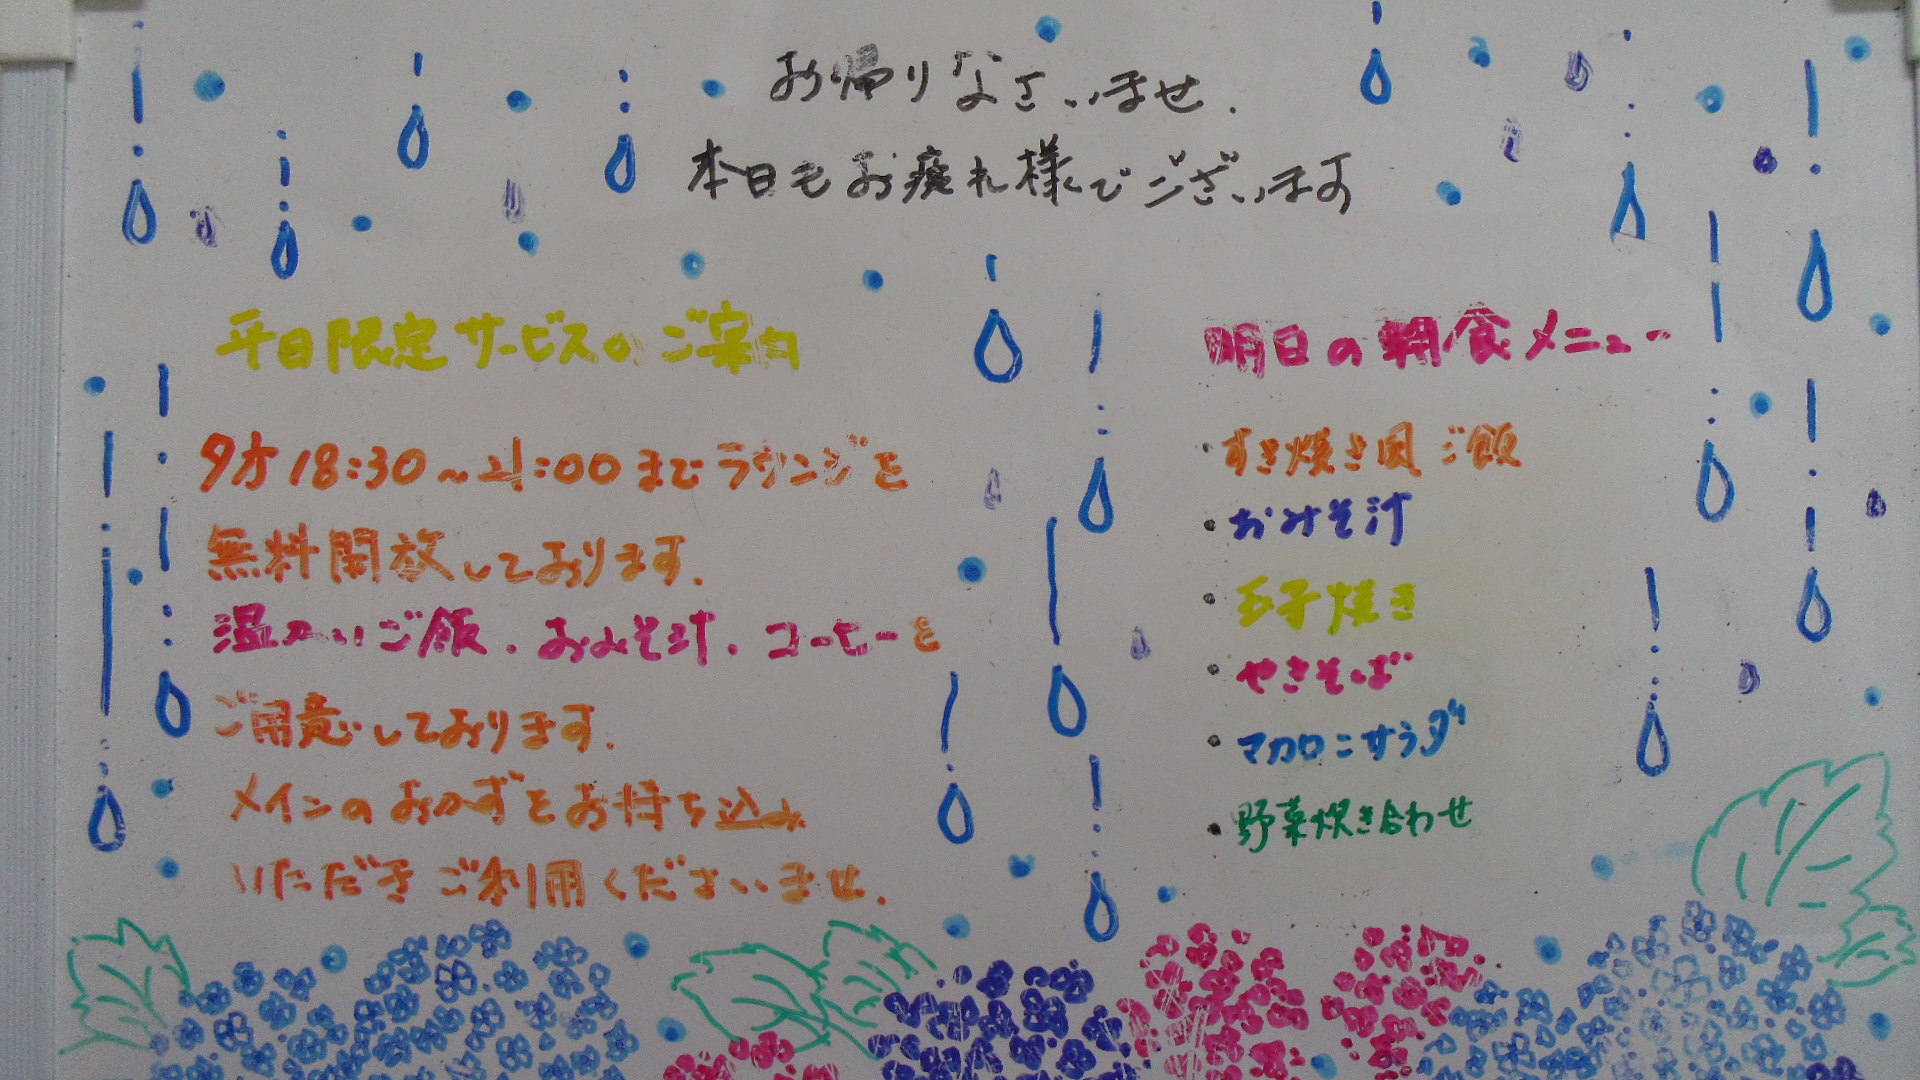 お帰りなさいませ.
本日もお疲れ様でございます
平日限定サービスのご案内
夕方18:30~21:00までラウンジを
無料開放しております.
温かいご飯.おみそ汁.コーヒーを
ご用意しております.
メインのおかずをお持ち込み
いただきご利用くださいませ.
明日の朝食メニュー
・すき焼き風ご飯
・おみそ汁
・玉子焼き
・やきそば
・マカロニサラダ
・野菜炊き合わせ